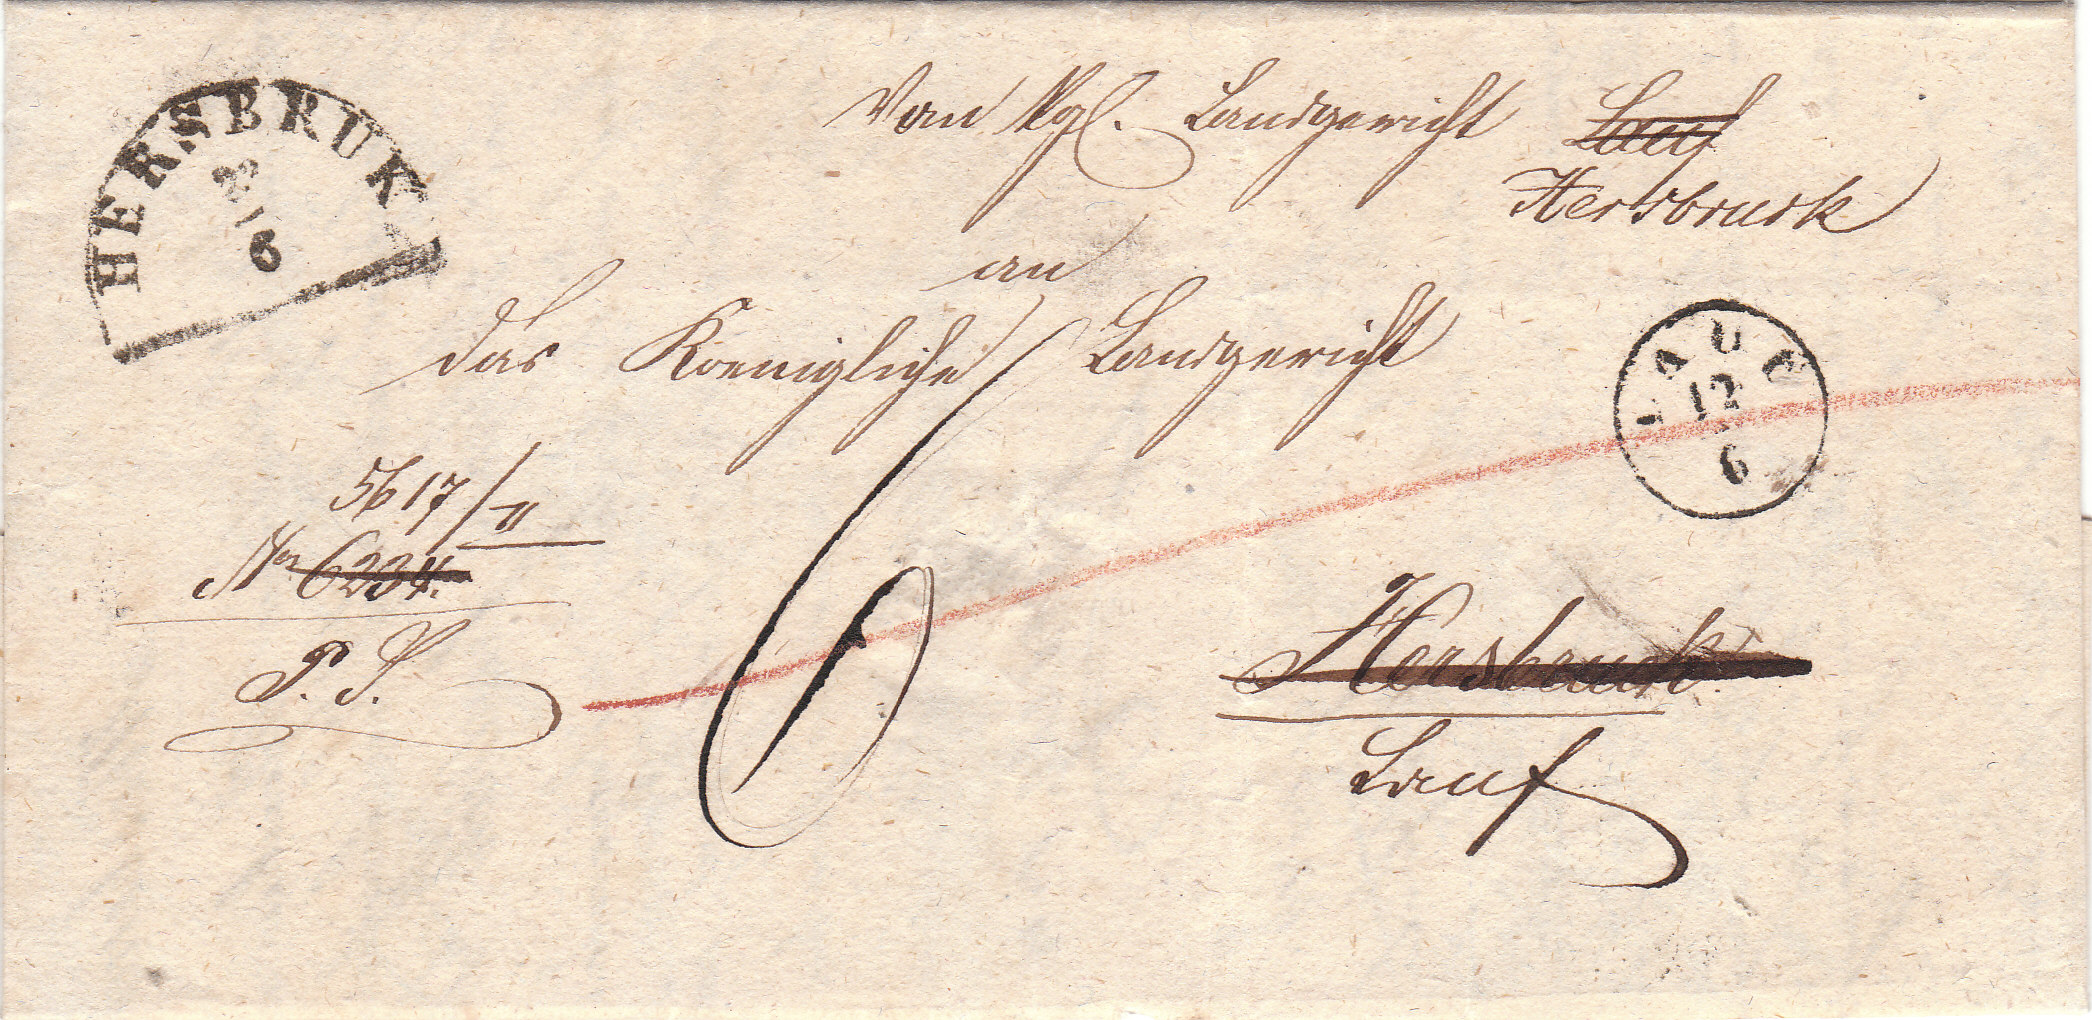 HERSBRUK
22
/
6
Vom Kgl. Landgericht Lauf
Hersbruck
an
das Koenigliche Landgericht
LAUF
12
6
5617/II
Nro 6234.
P. S.
6
Hersbruck.
Lauf